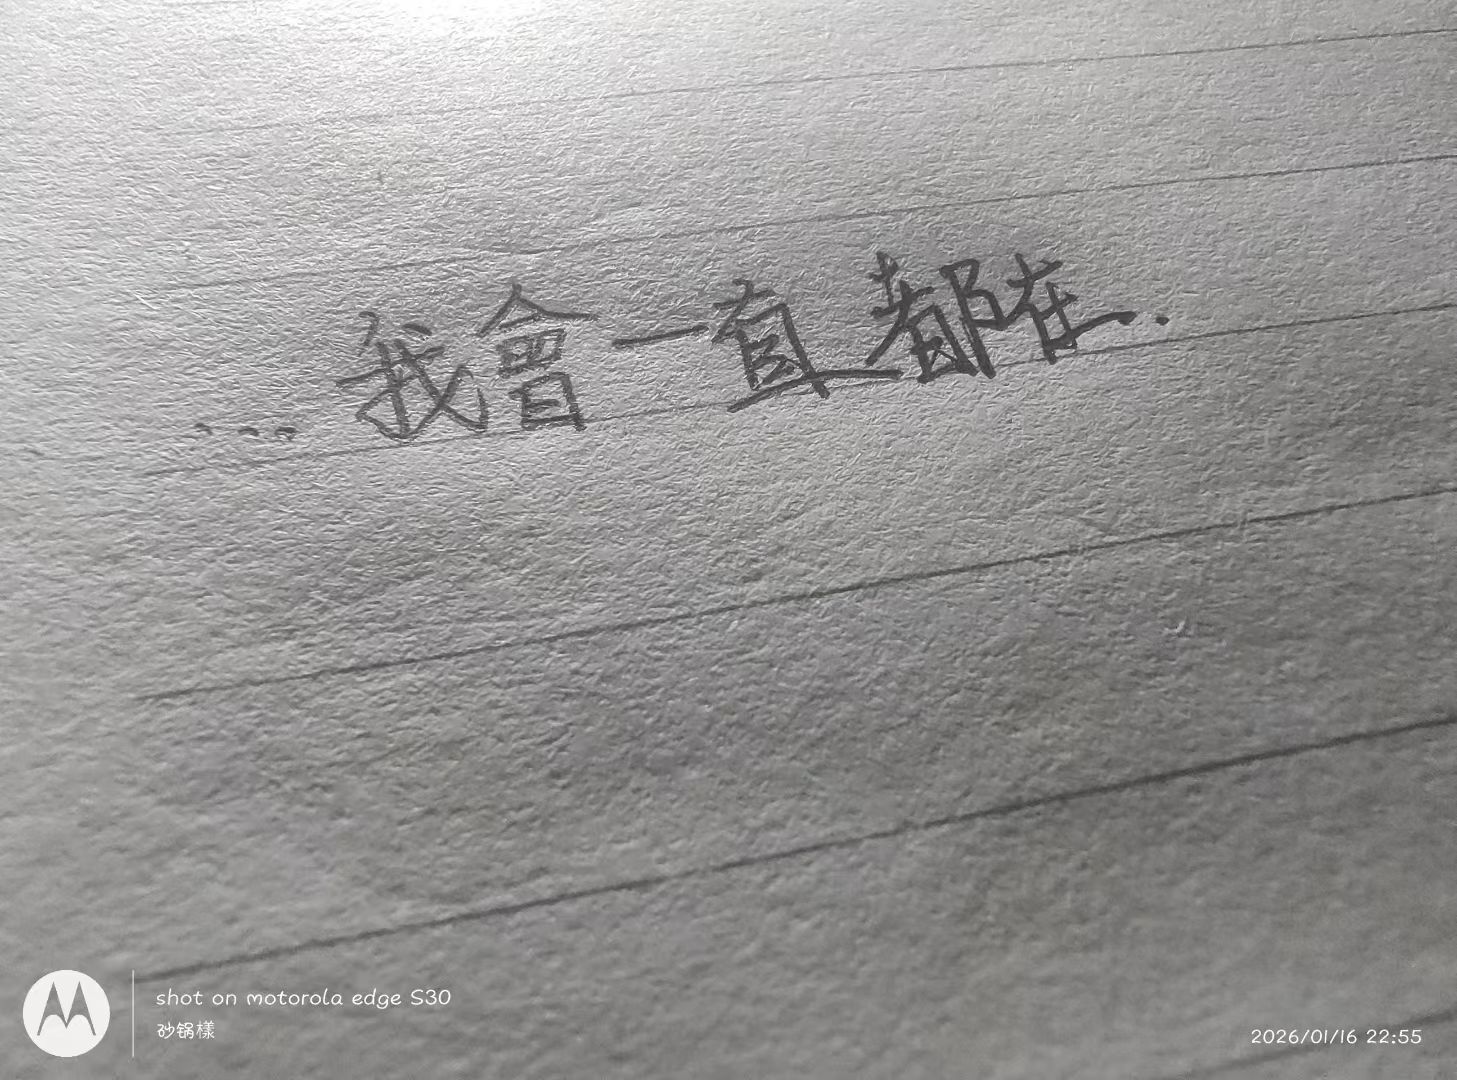 ...我會一直都在.
shot on motorola edge S30
砂锅樣
2026/01/16 22:55